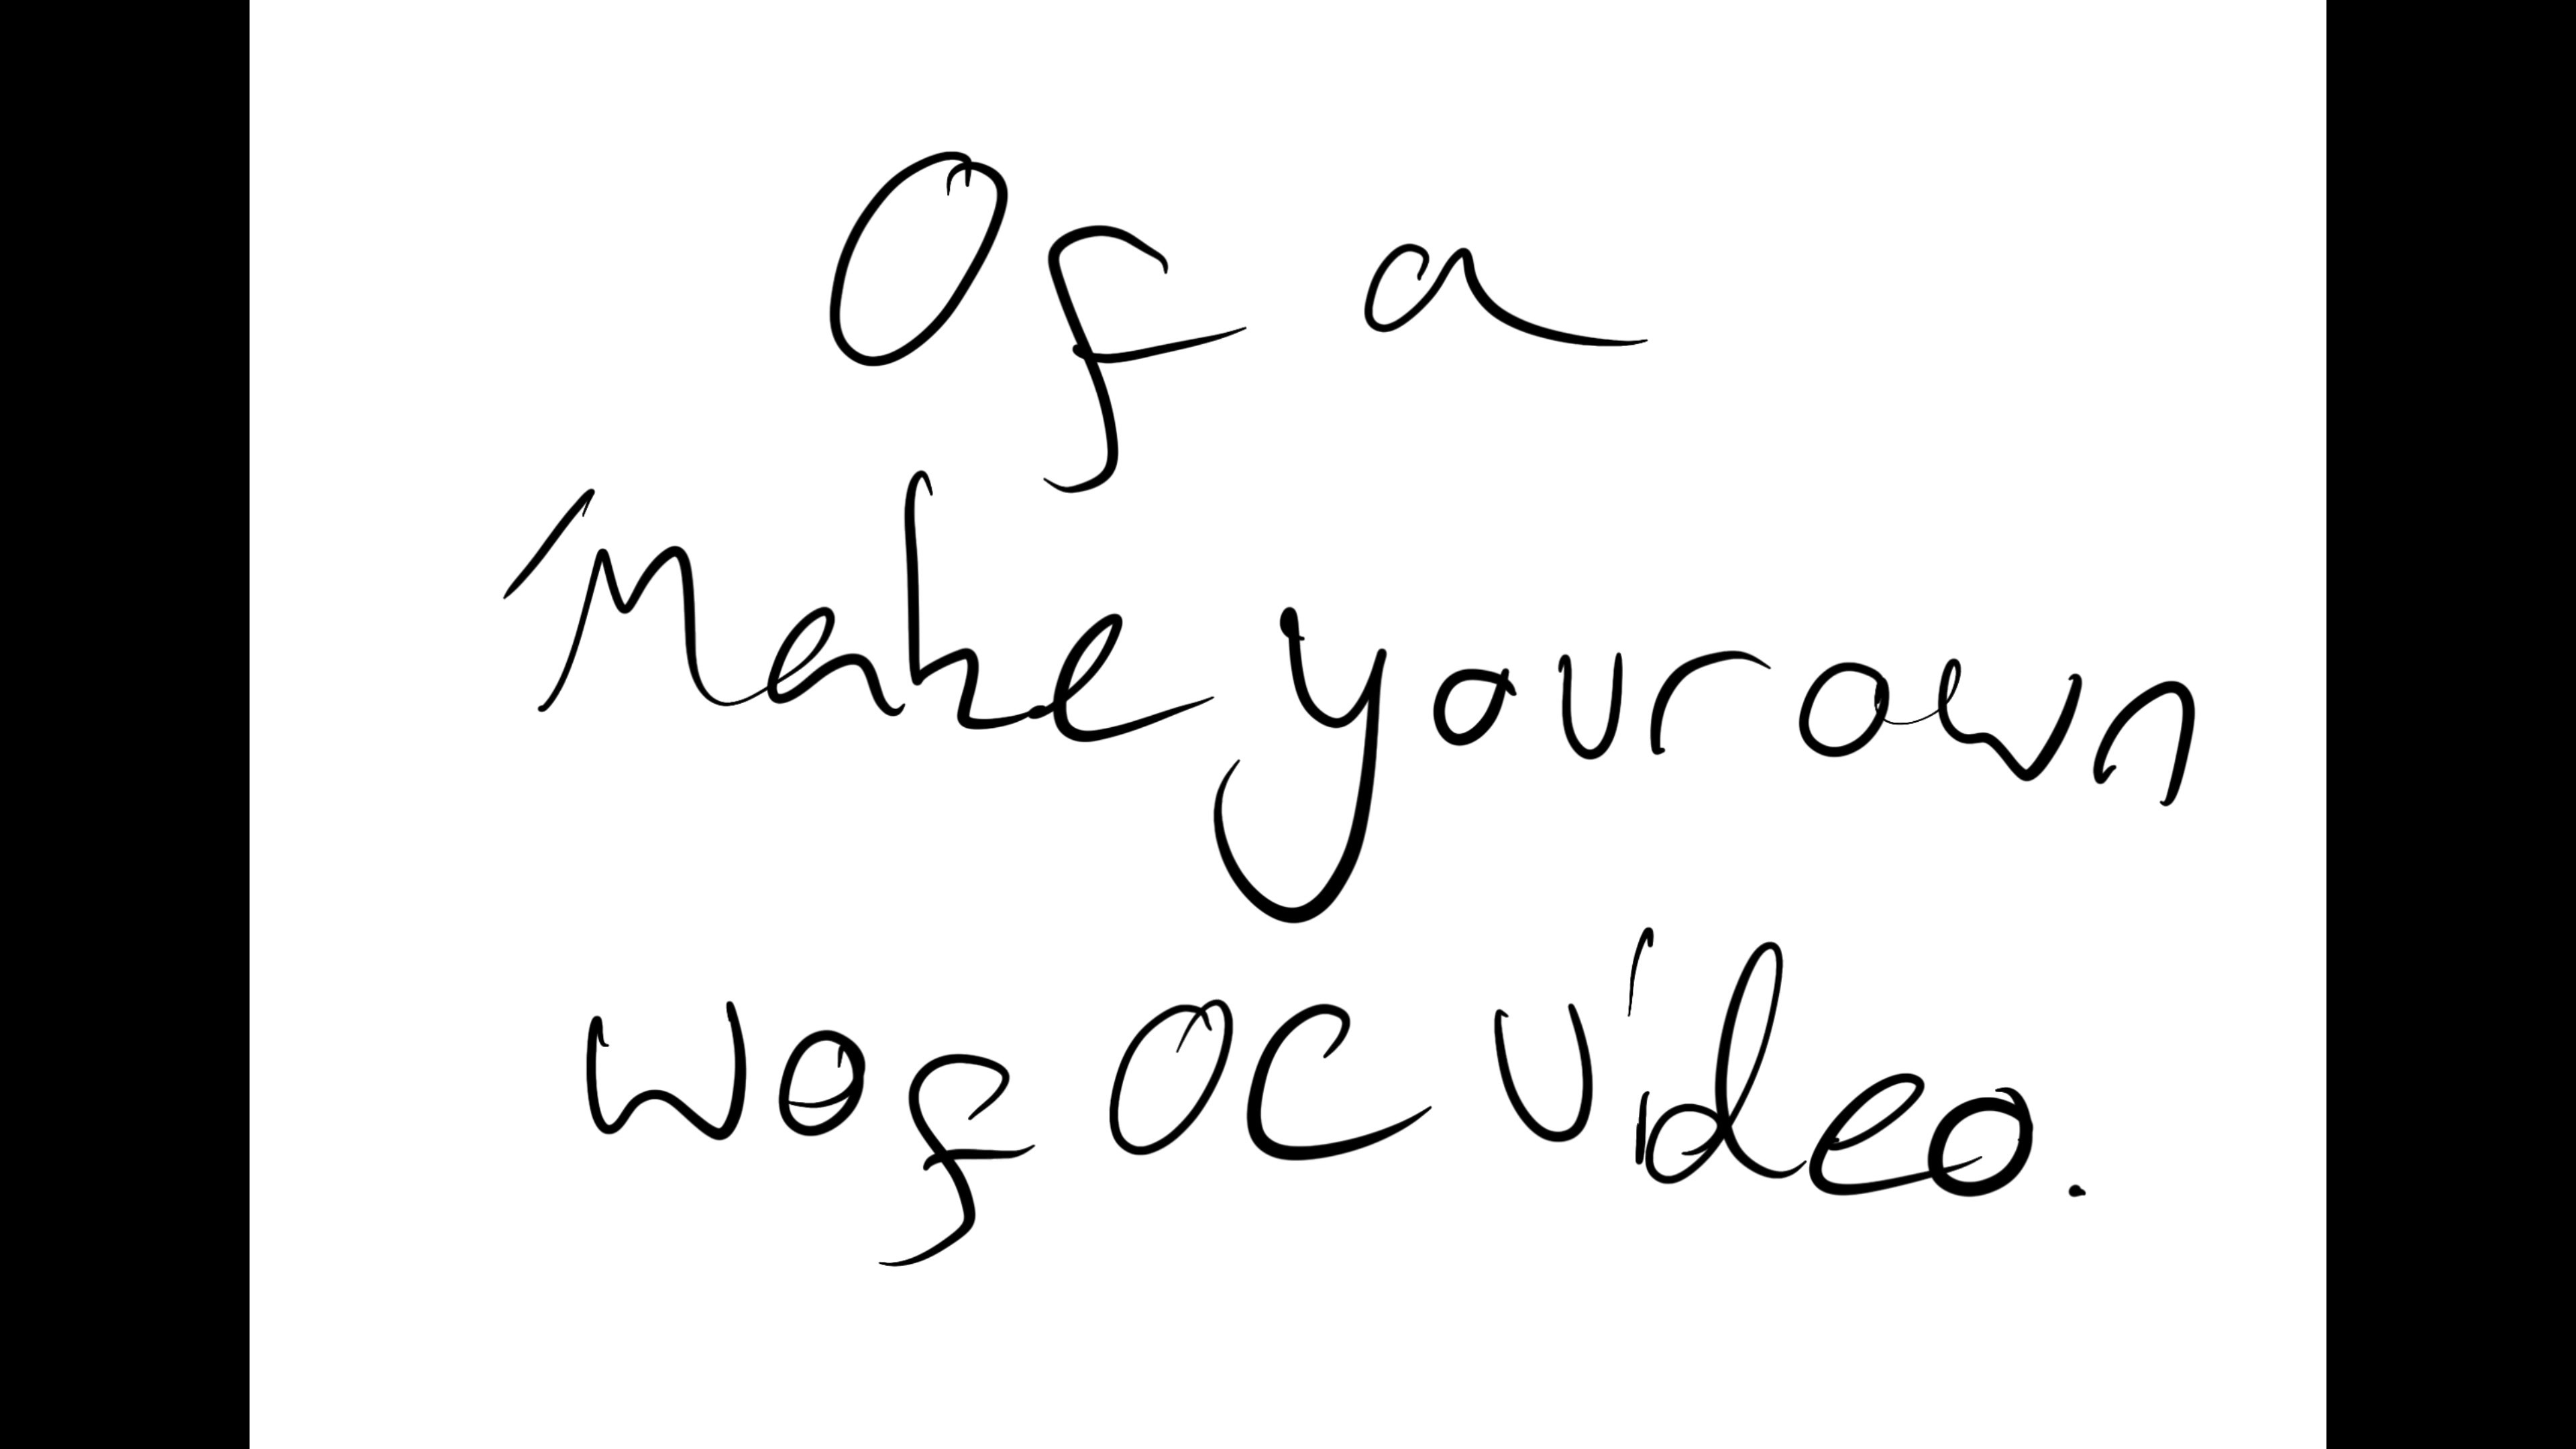 Of a
Make your own
Wof OC Video.